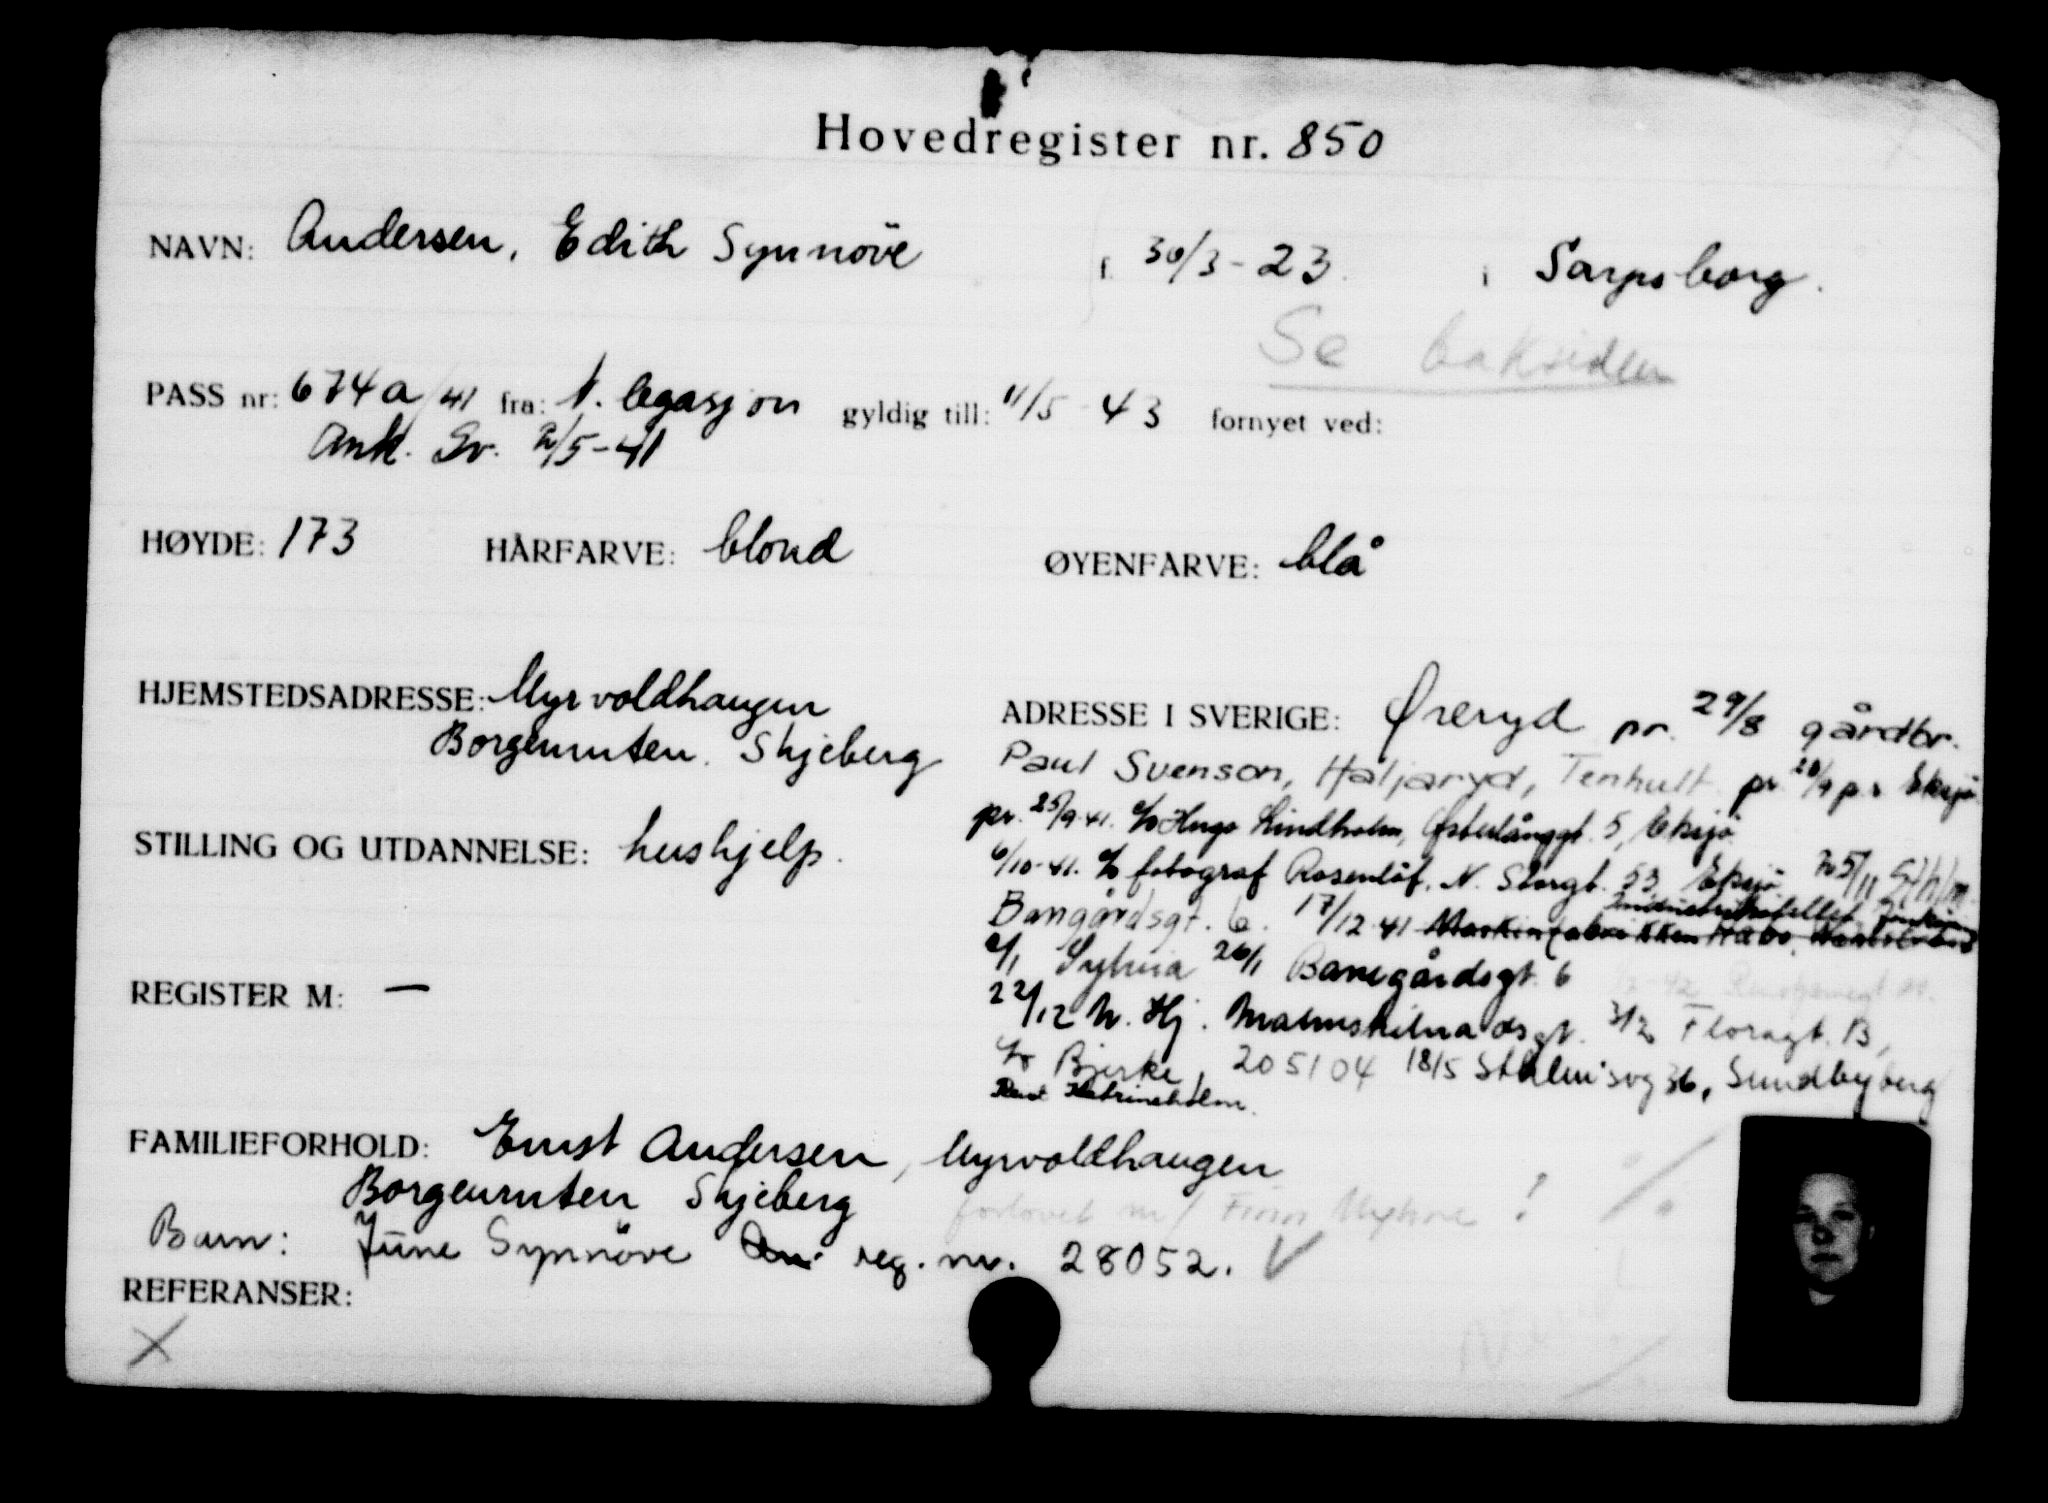 Hovedregister nr. 850
NAVN: Andersen, Edith Synnöve f. 30/3-23. i Sarpsborg.
Se baksiden
PASS nr: 674a/41 fra: N. legasjon gyldig till: 11/5-43 fornyet ved:
Ank. Sv. 2/5-41
HØYDE: 173 HÅRFARVE: blond ØYENFARVE: blå
HJEMSTEDSADRESSE: Myrvoldhaugen
Borgenruten. Skjeberg
ADRESSE I SVERIGE: Øreryd pr. 29/8 gårdbr.
Paul Svenson, Haljaryd, Tenhult pr. 20/9 p.r Eksjö
pr. 25/9.41. c/o Hugo Lindholm, Østerlånggt. 5, Eksjö.
6/10-41. c/o fotograf Rosenlöf, N. Storgt. 53 Eksjö 5/11 Sthlm.
Bangårdsgt. 6. 17/12 41 Maskinfabrikken
Sylvia 26/1 Banegårdsgt. 6
22/12 N. Hj. Malmskilnadsgt. 3/2 Floragt. 13,
c/o Bjerke, 205104 18/5 Sthlmsvg 36, Sundbyberg
Katrineholm.
STILLING OG UTDANNELSE: hushjelp.
REGISTER M: —
FAMILIEFORHOLD: Ernst Andersen, Myrvoldhaugen
Borgenruten Skjeberg
forlovet m/ Finn
Barn: June Synnöve reg. nr. 28052. ✓
REFERANSER:
X